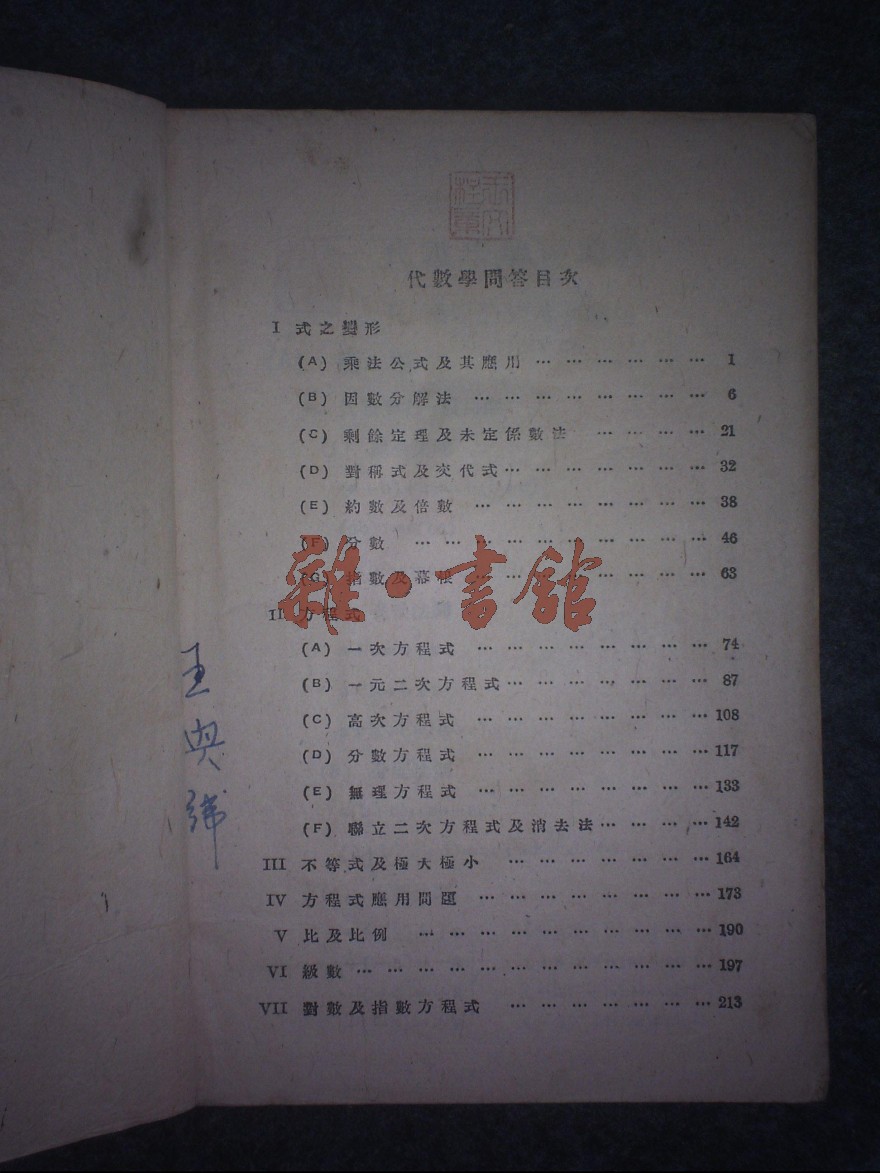 代數學問答目次
I 式之變形
(A) 乘法公式及其應用 … … … … … … 1
(B) 因數分解法 … … … … … … … … 6
(C) 剩餘定理及未定係數法 … … … … 21
(D) 對稱式及交代式… … … … … … … 32
(E) 約數及倍數 … … … … … … … … 38
(F) 分數 … … … … … … … … … … 46
(G) 指數及冪根 … … … … … … … … 63
II 方程式
(A) 一次方程式 … … … … … … … … 74
(B) 一元二次方程式… … … … … … … 87
(C) 高次方程式 … … … … … … … … 108
(D) 分數方程式 … … … … … … … … 117
(E) 無理方程式 … … … … … … … … 133
(F) 聯立二次方程式及消去法… … … … 142
III 不等式及極大極小 … … … … … … … 164
IV 方程式應用問題 … … … … … … … … 173
V 比及比例 … … … … … … … … … … 190
VI 級數… … … … … … … … … … … … 197
VII 對數及指數方程式 … … … … … … … 213
雜·書館
王